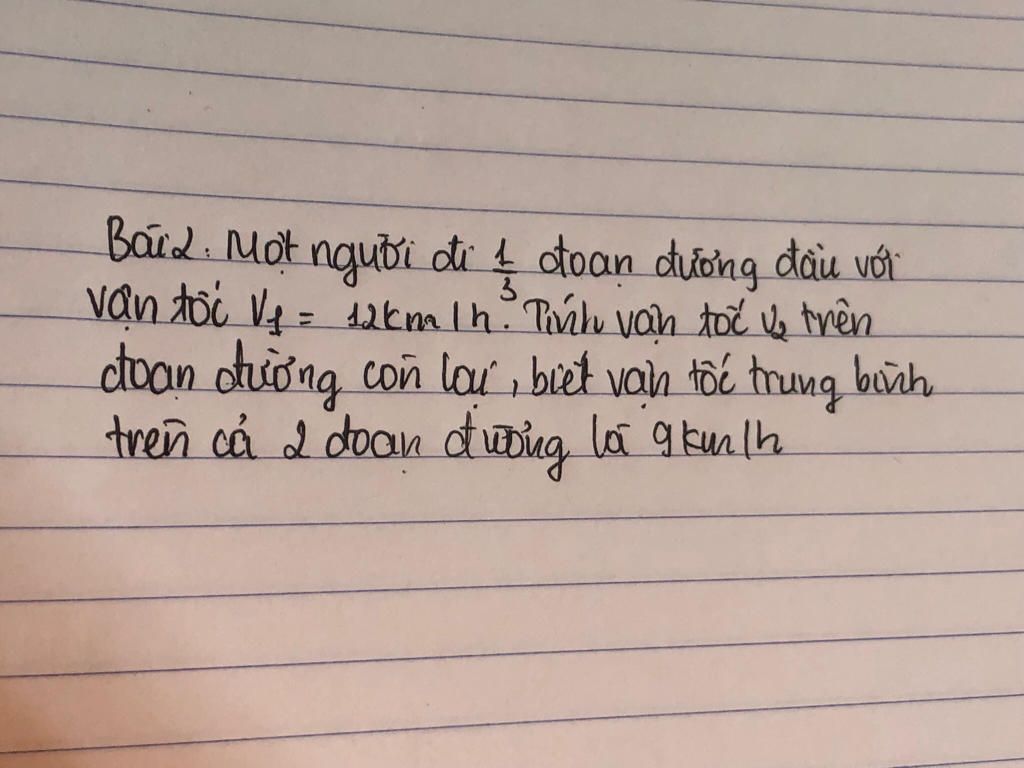 Bài 2. Một người đi 1/3 đoạn đường đầu với
vận tốc V1 = 12km/h. Tính vận tốc v2 trên
đoạn đường còn lại, biết vận tốc trung bình
trên cả 2 đoạn đường là 9km/h